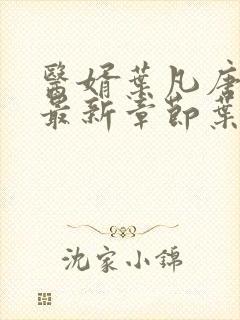 醫婿葉凡唐
最新章節葉
沈家小錦